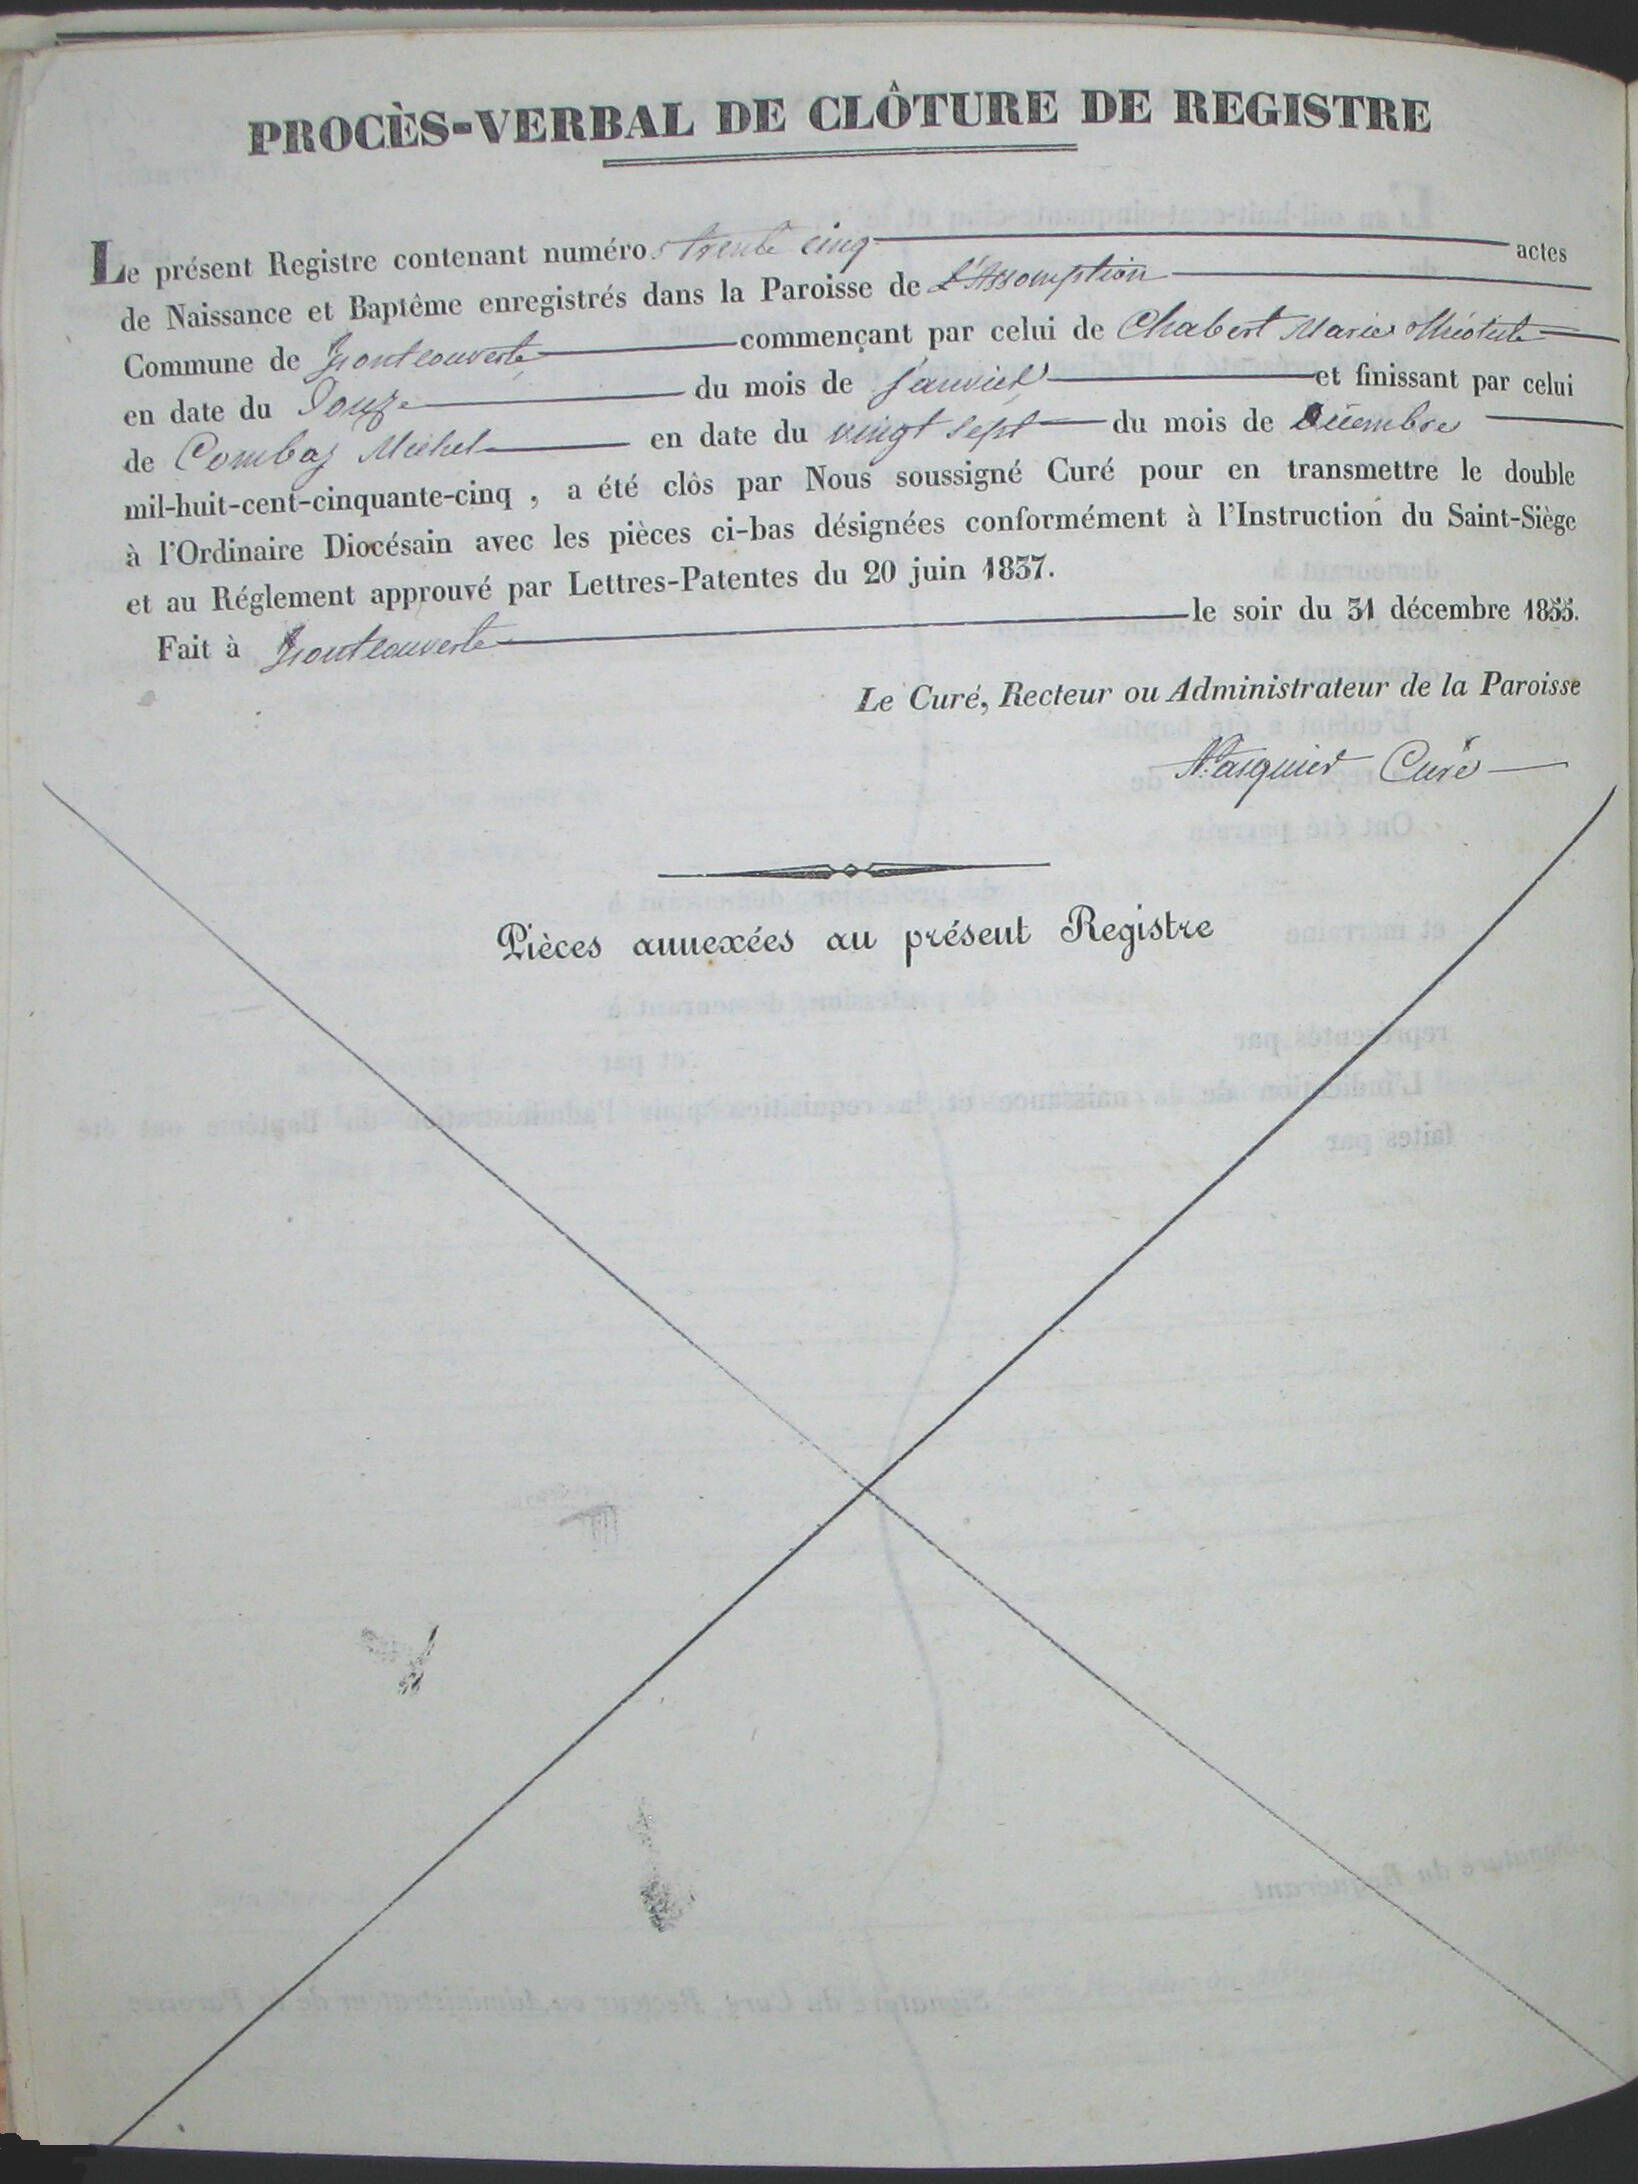 PROCÈS-VERBAL DE CLÔTURE DE REGISTRE
Le présent Registre contenant numéros trente cinq actes
de Naissance et Baptême enregistrés dans la Paroisse de L'Assomption
Commune de Frontcouverte commençant par celui de Chabert Marie
en date du Douze du mois de Janvier et finissant par celui
de Combaz Michel en date du vingt sept du mois de Décembre
mil-huit-cent-cinquante-cinq , a été clôs par Nous soussigné Curé pour en transmettre le double
à l'Ordinaire Diocésain avec les pièces ci-bas désignées conformément à l'Instruction du Saint-Siège
et au Réglement approuvé par Lettres-Patentes du 20 juin 1837.
Fait à Frontcouverte le soir du 31 décembre 1855.
Le Curé, Recteur ou Administrateur de la Paroisse
Curé
Pièces annexées au présent Registre